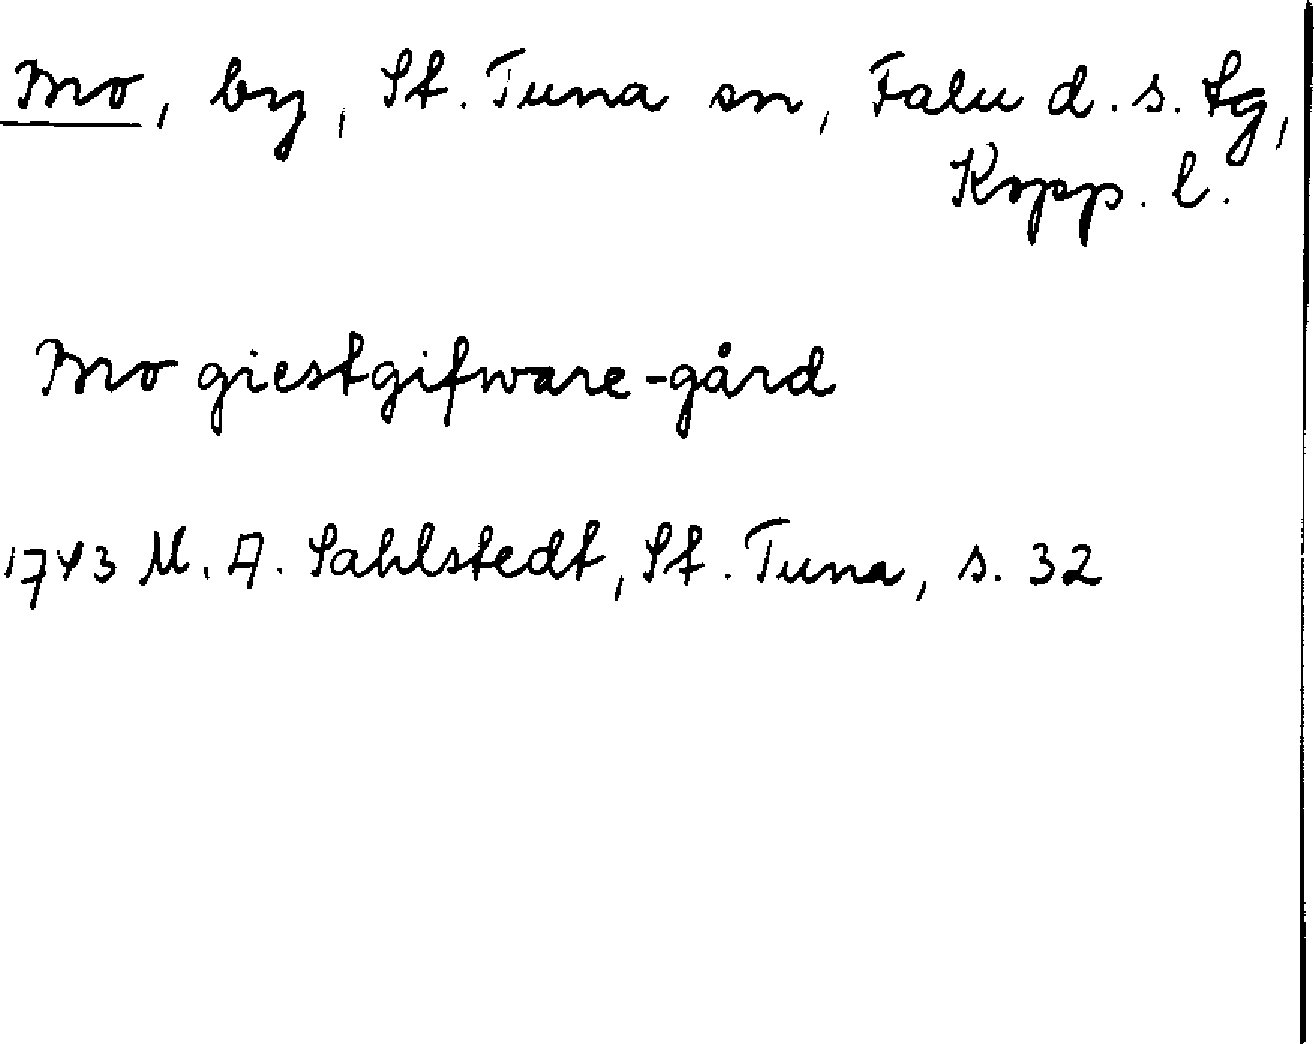 Mo, by, St. Tuna sn, Falu d. s. tg,
Kopp. l.
Mo giestgifware-gård
1743 M. A. Sahlstedt, St. Tuna, s. 32